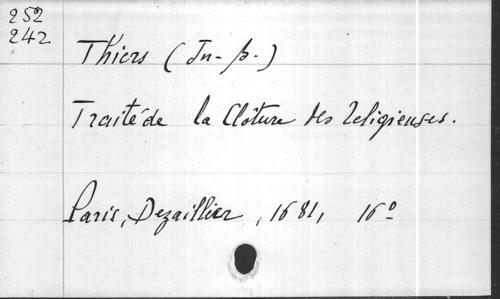 252
242.
Thiers (Jn-B.-)
Traité de la Clôture des Religieuses.
Paris, Dezaillier, 1681, 16º